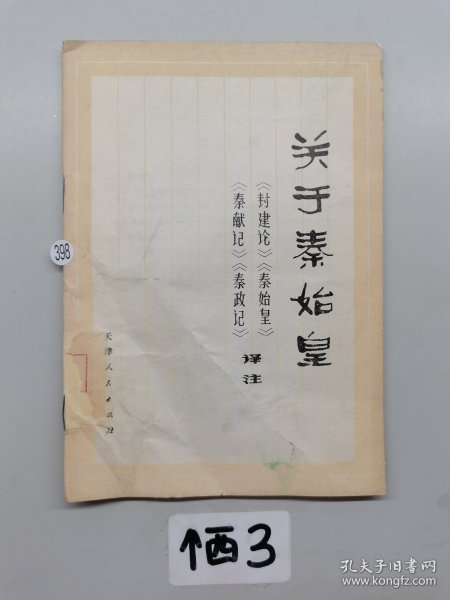 关于秦始皇
《封建论》《秦始皇》
《秦献记》《秦政记》
译注
天津人民出版社
398
孔夫子旧书网
www.kongfz.com